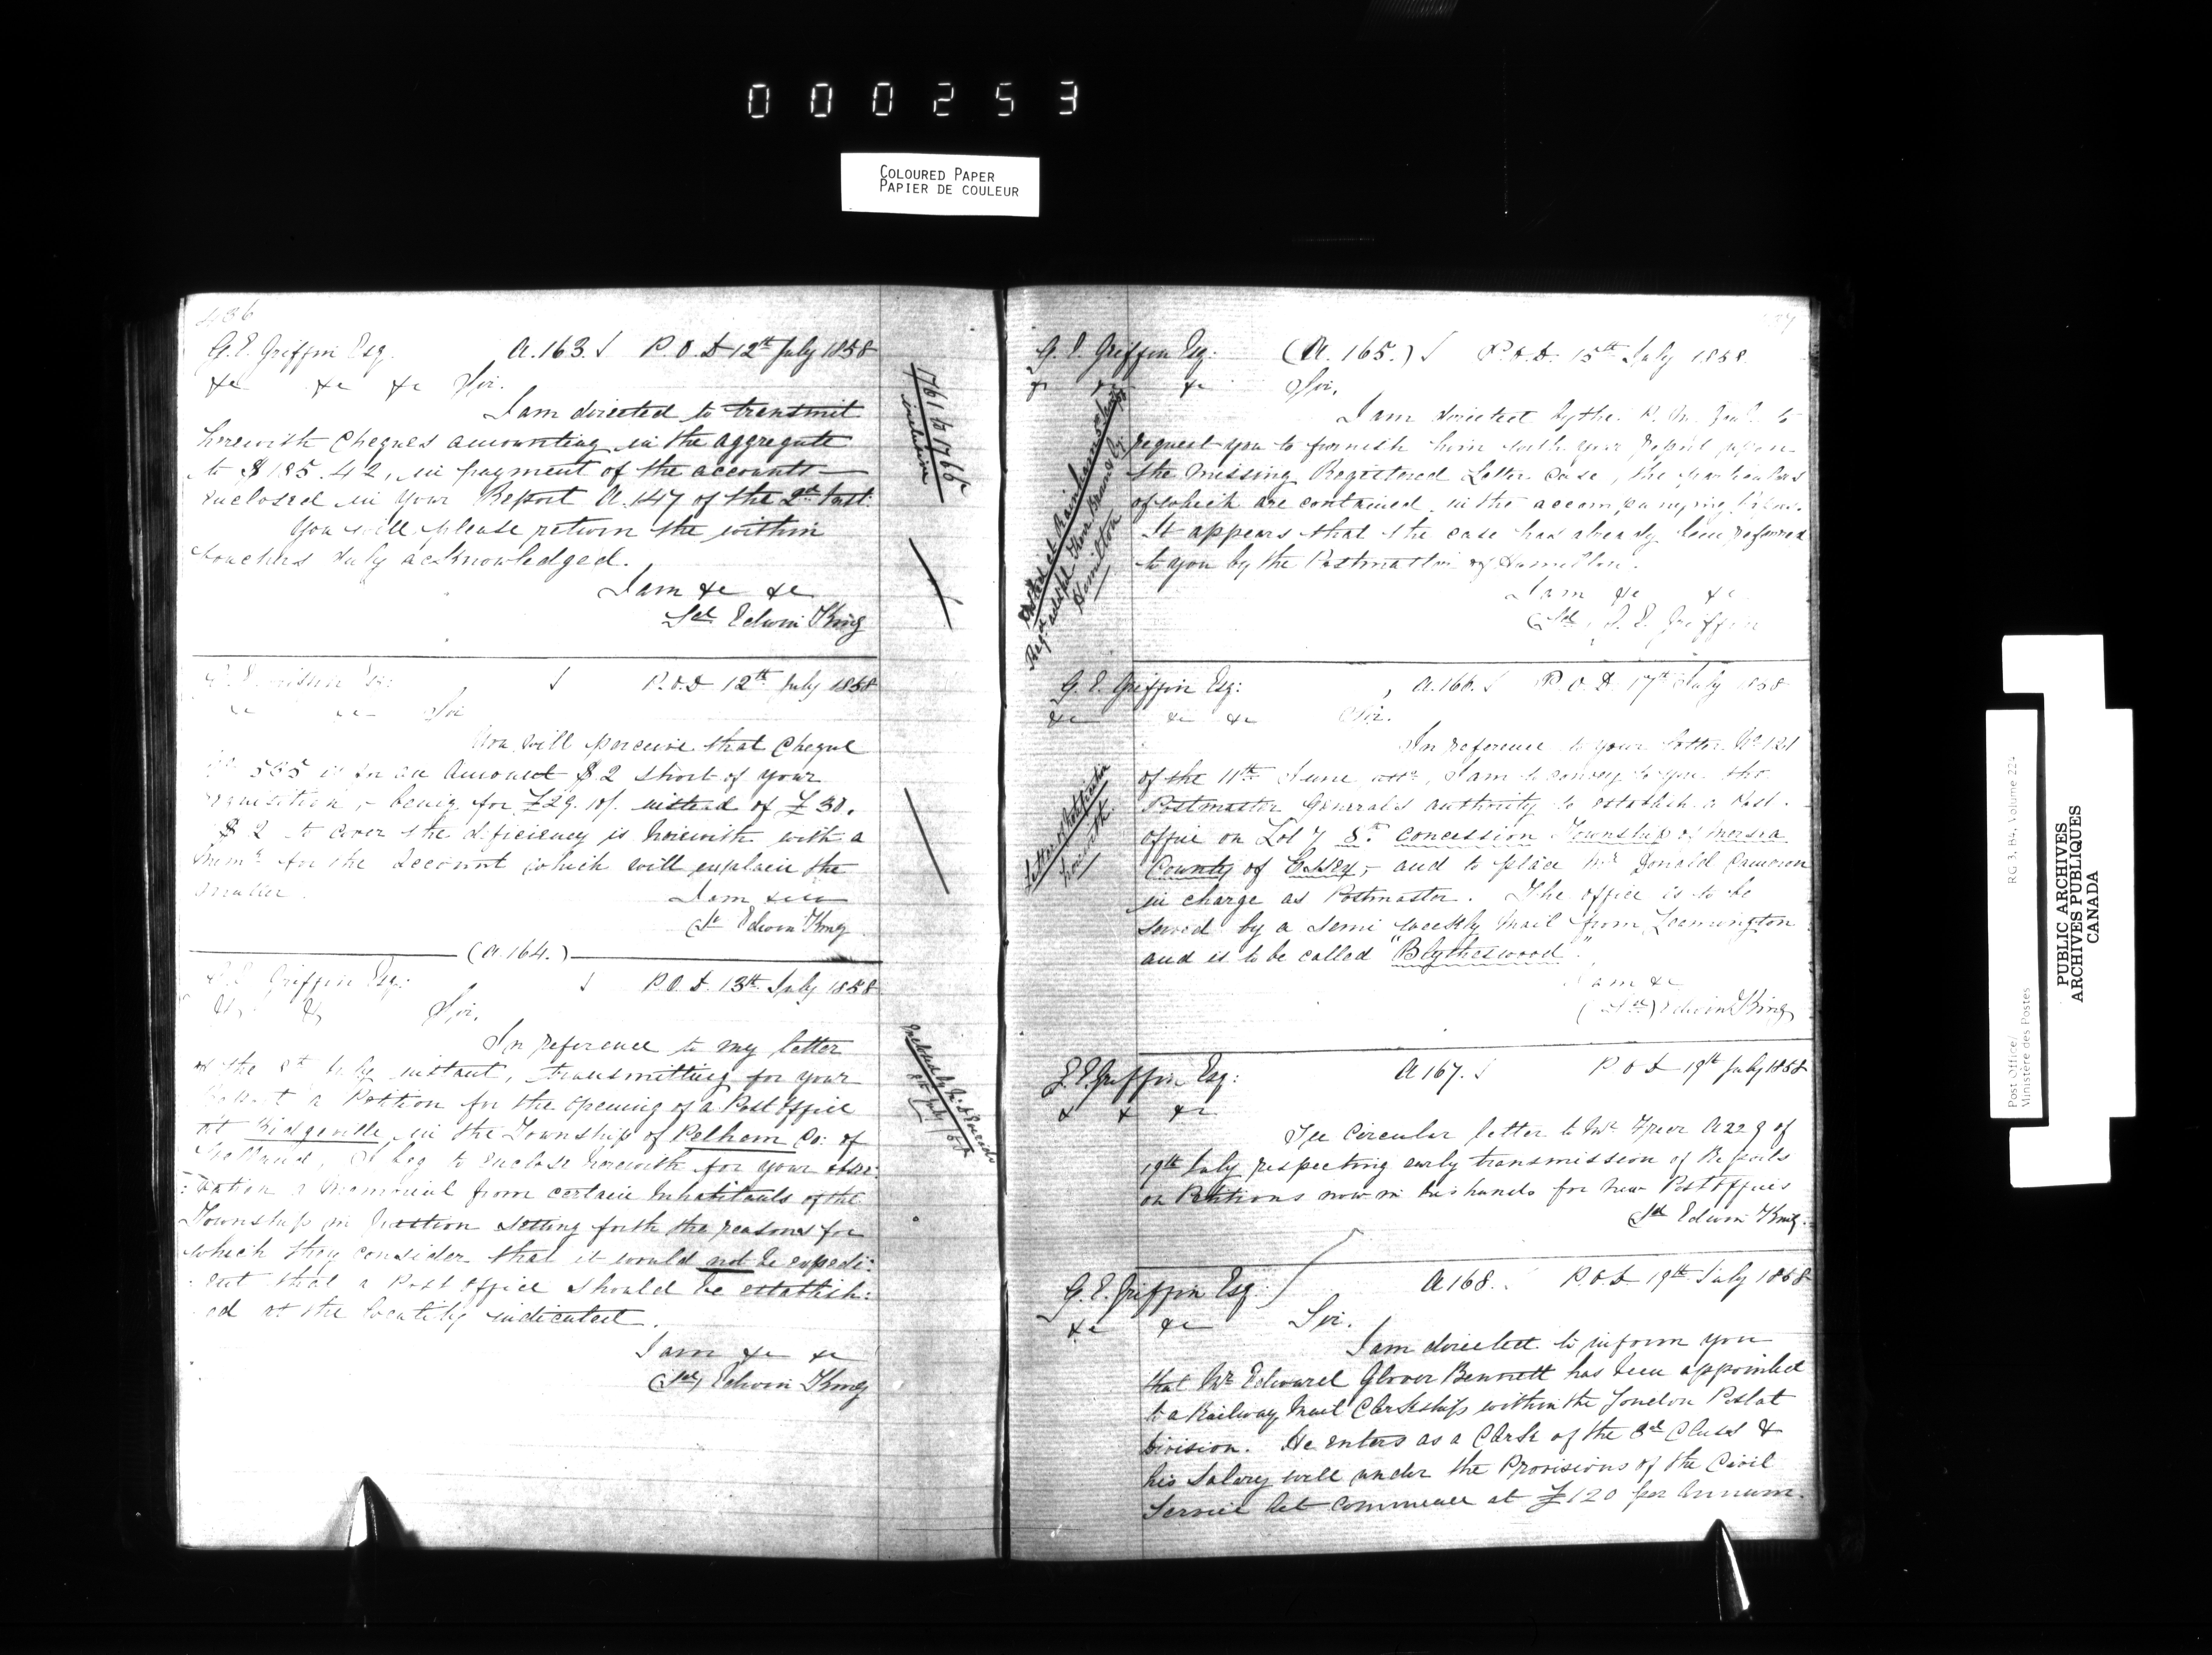 000253
COLOURED PAPER
PAPIER DE COULEUR
436
G. E. Griffin Esq. A.163. P.O.D 12th July 1858
&c &c &c Sir.
I am directed to transmit
herewith Cheques amounting in the aggregate
to $185.42, in payment of the accounts
enclosed in your Report A.147 of the 2d Inst.
You will please return the within
vouchers duly acknowledged.
I am &c &c
Sd Edwin King
1761 to 1766
inclusive
P.O.D 12th July 1858
Sir
You will perceive that Cheque
565 is for an Amount $2 short of your
requisition, being for £29.10/. instead of £30.
$2 to cover the deficiency is herewith with a
Memo for the account which will explain the
matter.
I am
(Sd Edwin King
(A.164.)
G. E. Griffin Esq: P.O.D. 13th July 1858
&c &c Sir,
In reference to my letter
of the 8th July instant, transmitting for your
Report a Petition for the opening of a Post Office
at Ridgeville in the Township of Pelham Co: of
Welland, I beg to enclose herewith for your obser:
:vation a memorial from certain Inhabitants of the
Township in question setting forth the reasons for
which they consider that it would not be expedi:
:ent that a Post Office should be establish:
:ed at the locality indicated.
I am &c &c
(Sd) Edwin King
8th July /58
G. E. Griffin Esq: (A.165.) P.O.D. 15th July 1858
&c &c &c Sir,
I am directed by the P. M. Genl. to
request you to furnish him with your report upon
the missing Registered Letter case, the particulars
of which are contained in the accompanying
It appears that the case has already been referred
to you by the Postmaster of Hamilton.
I am &c &c
(Sd. G. E. Griffin
Posted at Rainham
Hamilton
G. E. Griffin Esq: A.166. P.O.D. 17th July 1858
&c &c &c Sir.
In reference to your letter No 121
of the 11th June, I am to convey to you the
Postmaster General's authority to establish a Post
office on Lot 7 8th Concession Township of Mersea
County of Essex, and to place Mr Donald Cameron
in charge as Postmaster. The office is to be
served by a semi weekly Mail from Leamington
and is to be called "Blytheswood".
I am &c
(Sd) Edwin King
herewith
G. E. Griffin Esq: A167. P.O.D 19th July 1858
& & &c
See Circular letter to Mr Freer A229 of
19th July respecting early transmission of Reports
on Petitions now in his hands for new Post Offices
Sd Edwin King
G. E. Griffin Esq A168. P.O.D 19th July 1858
&c &c Sir.
I am directed to inform you
that Mr Edward Glover Bennett has been appointed
to a Railway Mail Clerkship within the London Postal
Division. He enters as a Clerk of the 3rd Class &
his Salary will under the Provisions of the Civil
Service Act commence at £120 per Annum.
Post Office/
Ministère des Postes
RG 3, B4, Volume 224
PUBLIC ARCHIVES
ARCHIVES PUBLIQUES
CANADA